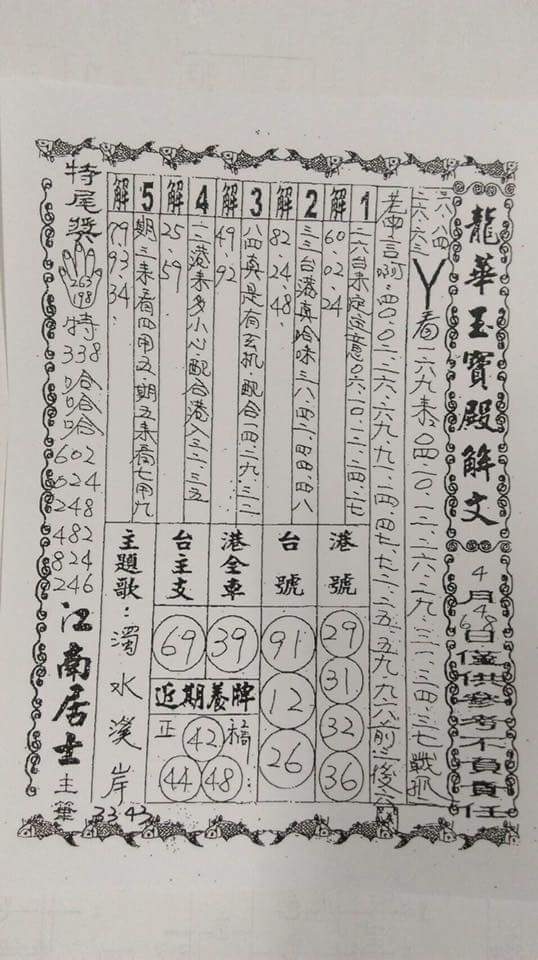 龍華玉寶殿解文
4月4.6.8日僅供參考不負責任
六六.八四
二六.六三
丫看一二六九來.0四.一0.一二.二六.二九.三一.三四.三七戰那
老師言啊.四0.0二.二六.六九.九一
1
二六台來定定意0六.一0.一二.二四.二七
解
60.02.24
2
三三台港真哈味三八.四二.四四.四八
解
82.24.48.
3
八四真是有玄机.配合一四.二九.三二
解
49.92
4
一一港來多小心.配合港八三二.三五
解
25.59
5
期三來看四甲五.期五來看七甲九
解
79.93.34.
港號
29
31
32
36
台號
91
12
26
港全車
39
台主支
69
近期養牌
正
42
44
48
主題歌：濁水溪岸
33 43
特尾獎
263
198
特
338
哈哈哈
602
024
248
482
824
246
江南居士主筆